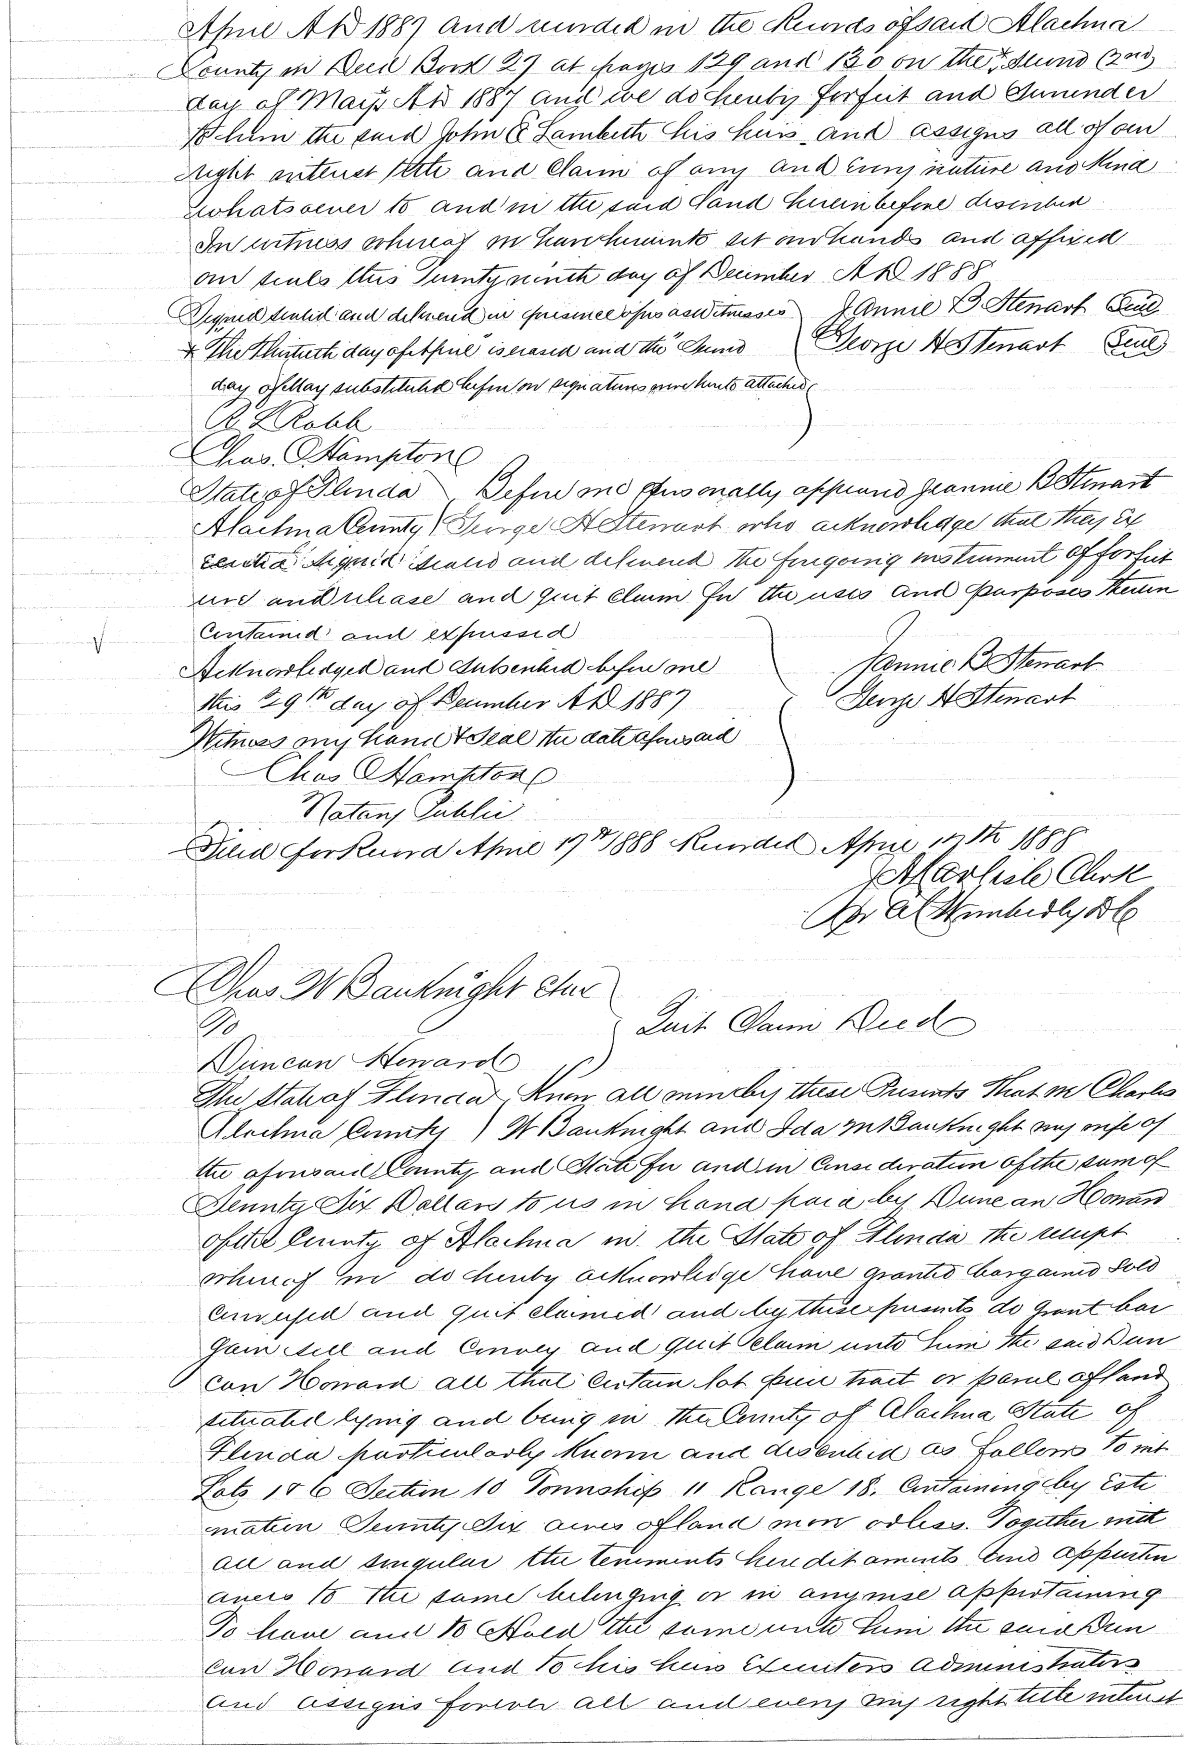 April AD 1887 and recorded in the Records of said Alachua
County in Deed Book 27 at pages 129 and 130 on the + Second (2nd)
day of May AD 1887 and we do hereby forfeit and surrender
to him the said John C Lambeth his heirs and assigns all of our
right interest title and claim of any and every nature and kind
whatsoever to and in the said land hereinbefore described
In witness whereof we have hereunto set our hands and affixed
our seals this Twenty ninth day of December AD 1888
Signed sealed and delivered in presence of us as witnesses Jannie B. Stewart Seal
+ "The thirtieth day of April" is erased and the "Second George H Stewart Seal
day of May substituted before our signatures were hereto attached
R L Robb
Chas. C Hampton
State of Florida Before me personally appeared Jeannie B Stewart
Alachua County George H Stewart who acknowledge that they ex
ecuted signed sealed and delivered the foregoing instrument of forfeit
ure and release and quit claim for the uses and purposes therein
contained and expressed
Acknowledged and subscribed before me Jannie B Stewart
this 29th day of December AD 1887 George H Stewart
Witness my hand & Seal the date aforesaid
Chas C Hampton
Notary Public
Filed for Record April 17th 1888 Recorded April 17th 1888
Clerk
Per D C
Chas W Bauknight etux
To Quit Claim Deed
Duncan Howard
The State of Florida Know all men by these Presents That we Charles
Alachua County W Bauknight and Ida M Bauknight my wife of
the aforesaid County and State for and in consideration of the sum of
Seventy Six Dollars to us in hand paid by Duncan Howard
of the County of Alachua in the State of Florida the receipt
whereof we do hereby acknowledge have granted bargained Sold
Conveyed and quit claimed and by these presents do grant bar
gain sell and Convey and quit claim unto him the said Dun
can Howard all that certain lot piece tract or parcel of land
situated lying and being in the County of Alachua State of
Florida particularly known and described as follows to wit
Lots 1 & 6 Section 10 Township 11 Range 18. Containing by Esti
mation Seventy Six acres of land more or less. Together with
all and singular the tenements hereditaments and appurten
ances to the same belonging or in anywise appertaining
To have and to Hold the same unto him the said Dun
can Howard and to his heirs Executors administrators
and assigns forever all and every my right title interest